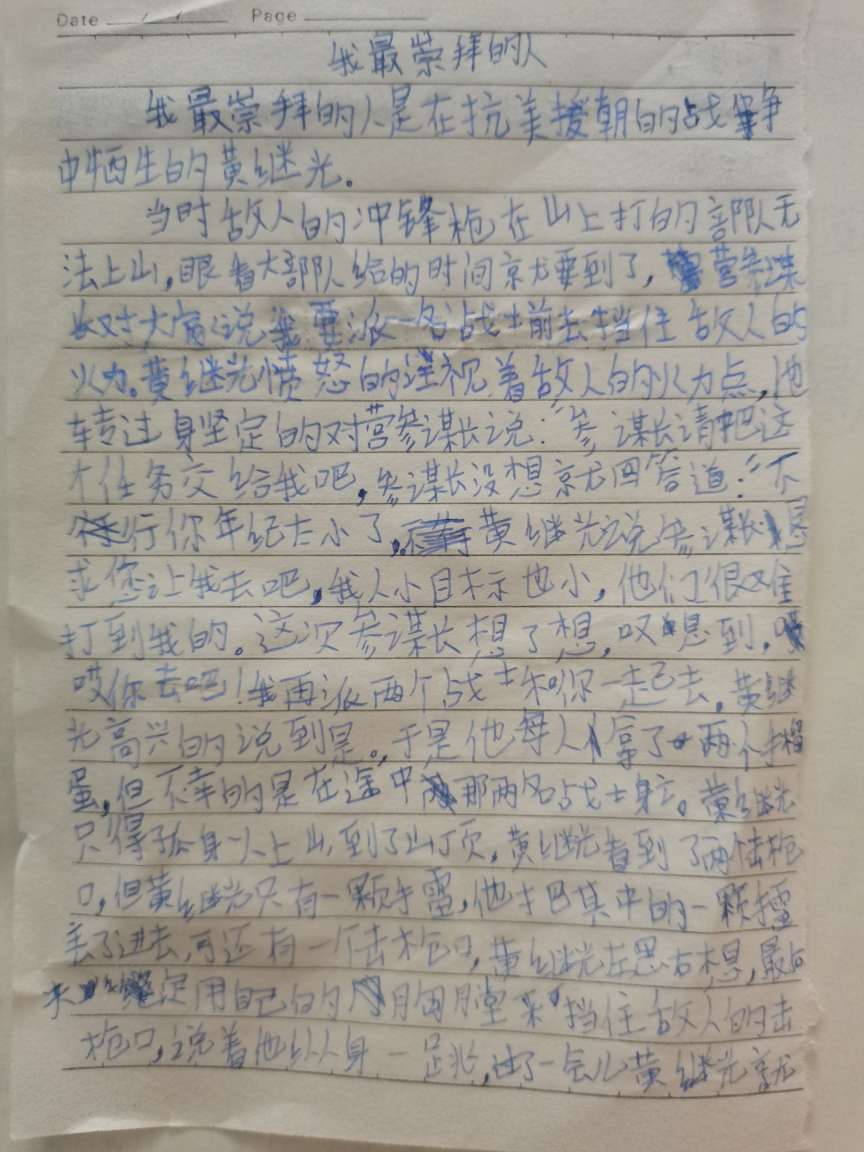 Date / / Page
我最崇拜的人
我最崇拜的人是在抗美援朝的战争
中牺牲的黄继光。
当时敌人的冲锋枪在山上打的部队无
法上山,眼看大部队给的时间就要到了,营参谋
长对大家说我要派一名战士前去挡住敌人的
火力。黄继光愤怒的注视着敌人的火力点,他
转过身坚定的对营参谋长说:“参谋长请把这
个任务交给我吧,参谋长没想就回答道:“不
行你年纪太小了,黄继光说参谋长恳
求您让我去吧,我人小目标也小,他们很难
打到我的。这次参谋长想了想,叹息到,
哎你去吧!我再派两个战士和你一起去。黄继
光高兴的说到是。于是他每人拿了两个手榴
蛋,但不幸的是在途中那两名战士身亡。黄继光
只得孤身一人上山,到了山顶,黄继光看到了两架枪
口,但黄继光只有一颗手雷,他把其中的一颗手雷
丢了进去,可还有一个击枪口,黄继光左思右想,最后
决定用自己的胸膛来挡住敌人的击
枪口,说着他纵身一跳,过了一会儿黄继光就